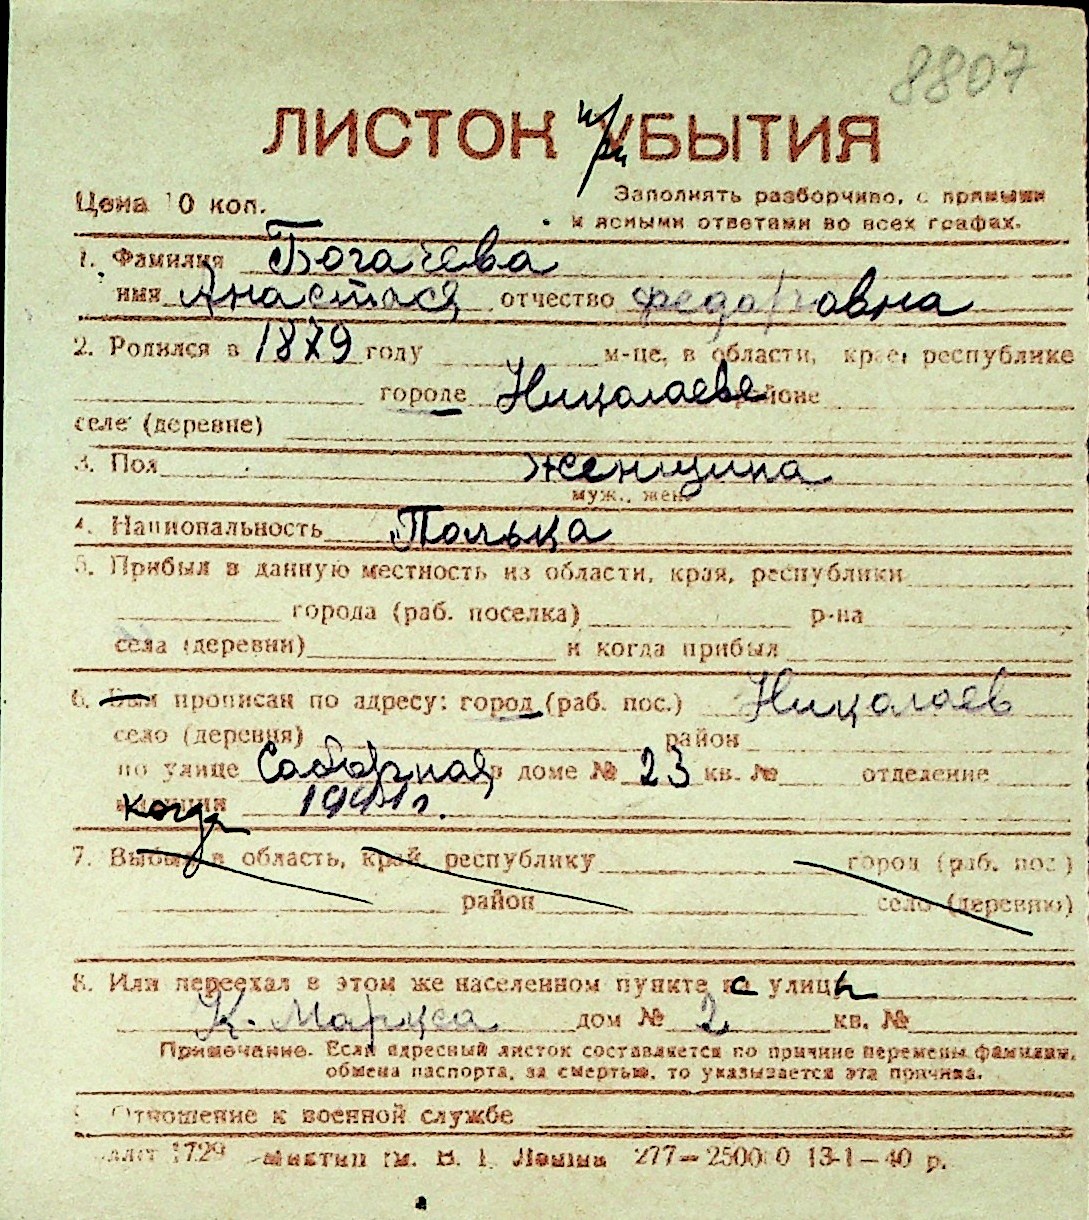 8807
ЛИСТОК при УБЫТИЯ
Цена 10 коп.
Заполнять разборчиво, с прямыми
и ясными ответами во всех графах.
1. Фамилия Богачева
имя Анастасія отчество Федоровна
2. Родился в 1879 году м-це, в области, крае, республике
городе Николаеве районе
селе (деревне)
3. Пол женщина
муж., жен.
4. Национальность Полька
5. Прибыл в данную местность из области, края, республики
города (раб. поселка) р-на
села (деревни) и когда прибыл
6. Был прописан по адресу: город (раб. пос.) Николаев
село (деревня) район
по улице Соборная в доме № 23 кв. № отделение
милиции когда 1941 г.
7. Выбыл в область, край, республику город (раб. пос.)
район село (деревню)
8. Или переехал в этом же населенном пункте с улицы
К. Маркса дом № 2 кв. №
Примечание. Если адресный листок составляется по причине перемены фамилии,
обмена паспорта, за смертью, то указывается эта причина.
Отношение к военной службе
1729 им. В. И. Ленина 277—250000 13-1—40 р.